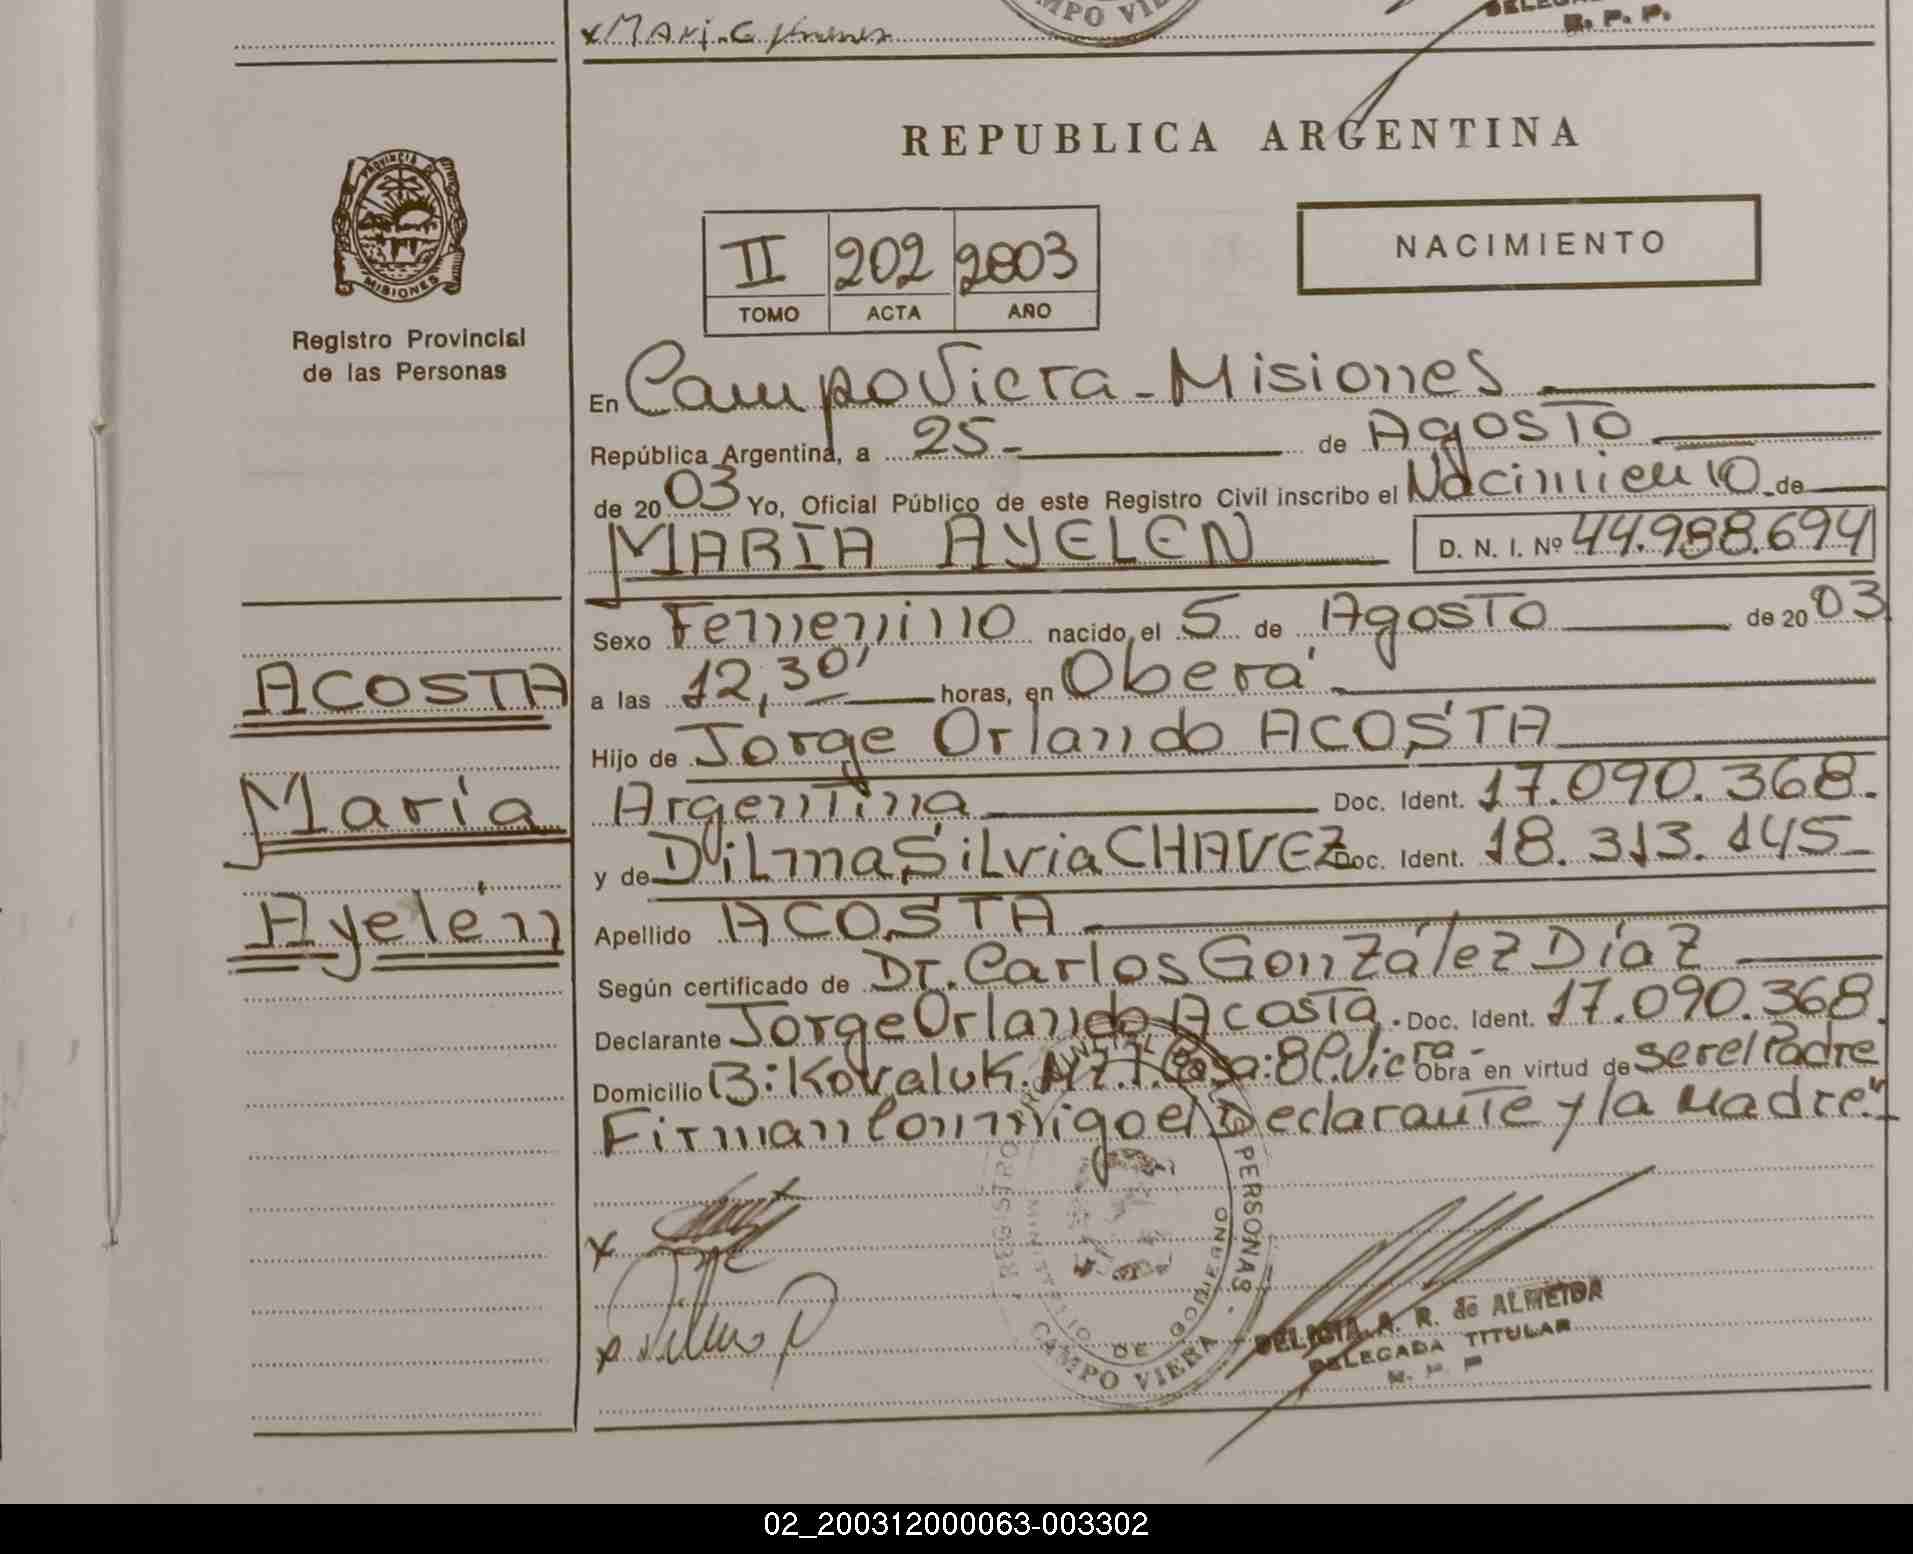 CAMPO VIE
R. P. P.
REPUBLICA ARGENTINA
PROVINCIA DE
MISIONES
Registro Provincial
de las Personas
II 202 2003
TOMO ACTA AÑO
NACIMIENTO
En Campo Viera - Misiones
República Argentina, a 25 - de Agosto
de 2003 Yo, Oficial Público de este Registro Civil inscribo el Nacimiento de
MARIA AYELEN D. N. I. Nº 44.988.694
Sexo Femenino nacido el 5 de Agosto de 2003
a las 12,30' horas, en Oberá
Hijo de Jorge Orlando ACOSTA
Argentina Doc. Ident. 17.090.368.
y de Dilma Silvia CHAVEZ Doc. Ident. 18.313.145
Apellido ACOSTA
Según certificado de Dr. Carlos González Díaz
Declarante Jorge Orlando Acosta. Doc. Ident. 17.090.368.
Domicilio B: Kovaluk. Mz. 1. Casa: 8 C. Viera - Obra en virtud de ser el Padre
Firman conmigo el Declarante y la Madre"
ACOSTA
María
Ayelén
REGISTRO PROVINCIAL DE LAS PERSONAS
MINISTERIO DE GOBIERNO
CAMPO VIERA
DELICIA A. R. de ALMEIDA
DELEGADA TITULAR
R. P. P.
02_200312000063-003302